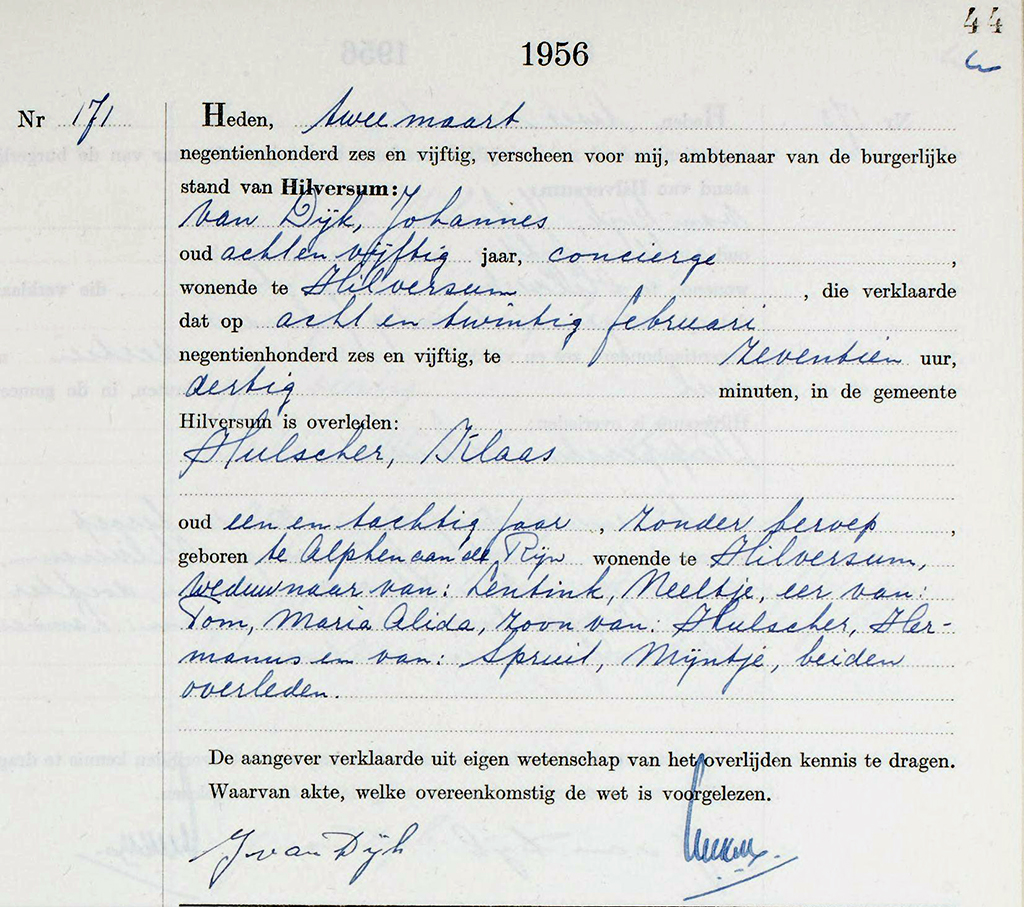 44
1956
Nr 171
Heden, twee maart
negentienhonderd zes en vijftig, verscheen voor mij, ambtenaar van de burgerlijke
stand van Hilversum:
van Dijk, Johannes
oud achtenvijftig jaar, concierge ,
wonende te Hilversum , die verklaarde
dat op acht en twintig februari
negentienhonderd zes en vijftig, te zeventien uur,
dertig minuten, in de gemeente
Hilversum is overleden:
Hulscher, Klaas
oud een en tachtig jaar , zonder beroep ,
geboren te Alphen aan de Rijn wonende te Hilversum,
weduwnaar van: Lentink, Neeltje, eer van:
Tom, Maria Alida, zoon van: Hulscher, Her-
manus en van: Spruit, Mijntje, beiden
overleden.
De aangever verklaarde uit eigen wetenschap van het overlijden kennis te dragen.
Waarvan akte, welke overeenkomstig de wet is voorgelezen.
J van Dijk